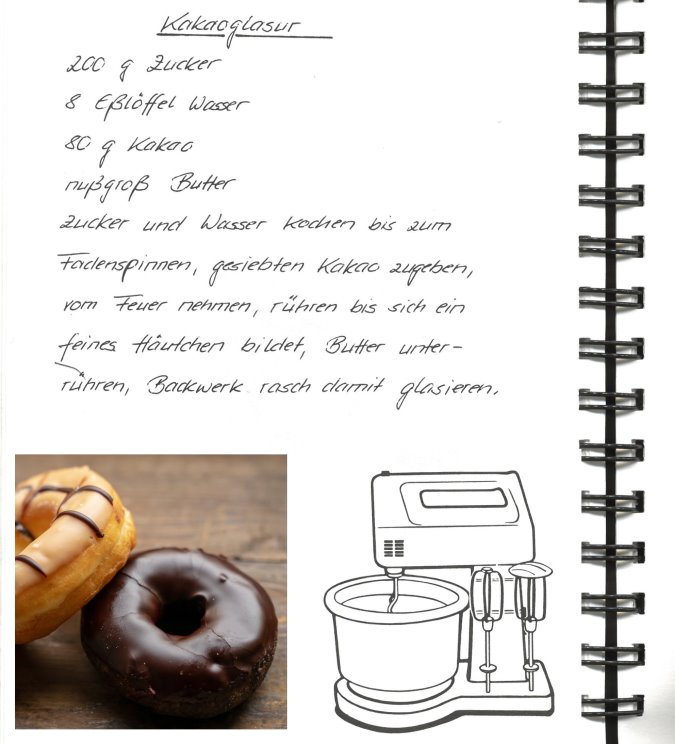 Kakaoglasur
200 g Zucker
8 Eßlöffel Wasser
80 g Kakao
nußgroß Butter
Zucker und Wasser kochen bis zum
Fadenspinnen, gesiebten Kakao zugeben,
vom Feuer nehmen, rühren bis sich ein
feines Häutchen bildet, Butter unter-
rühren, Backwerk rasch damit glasieren.